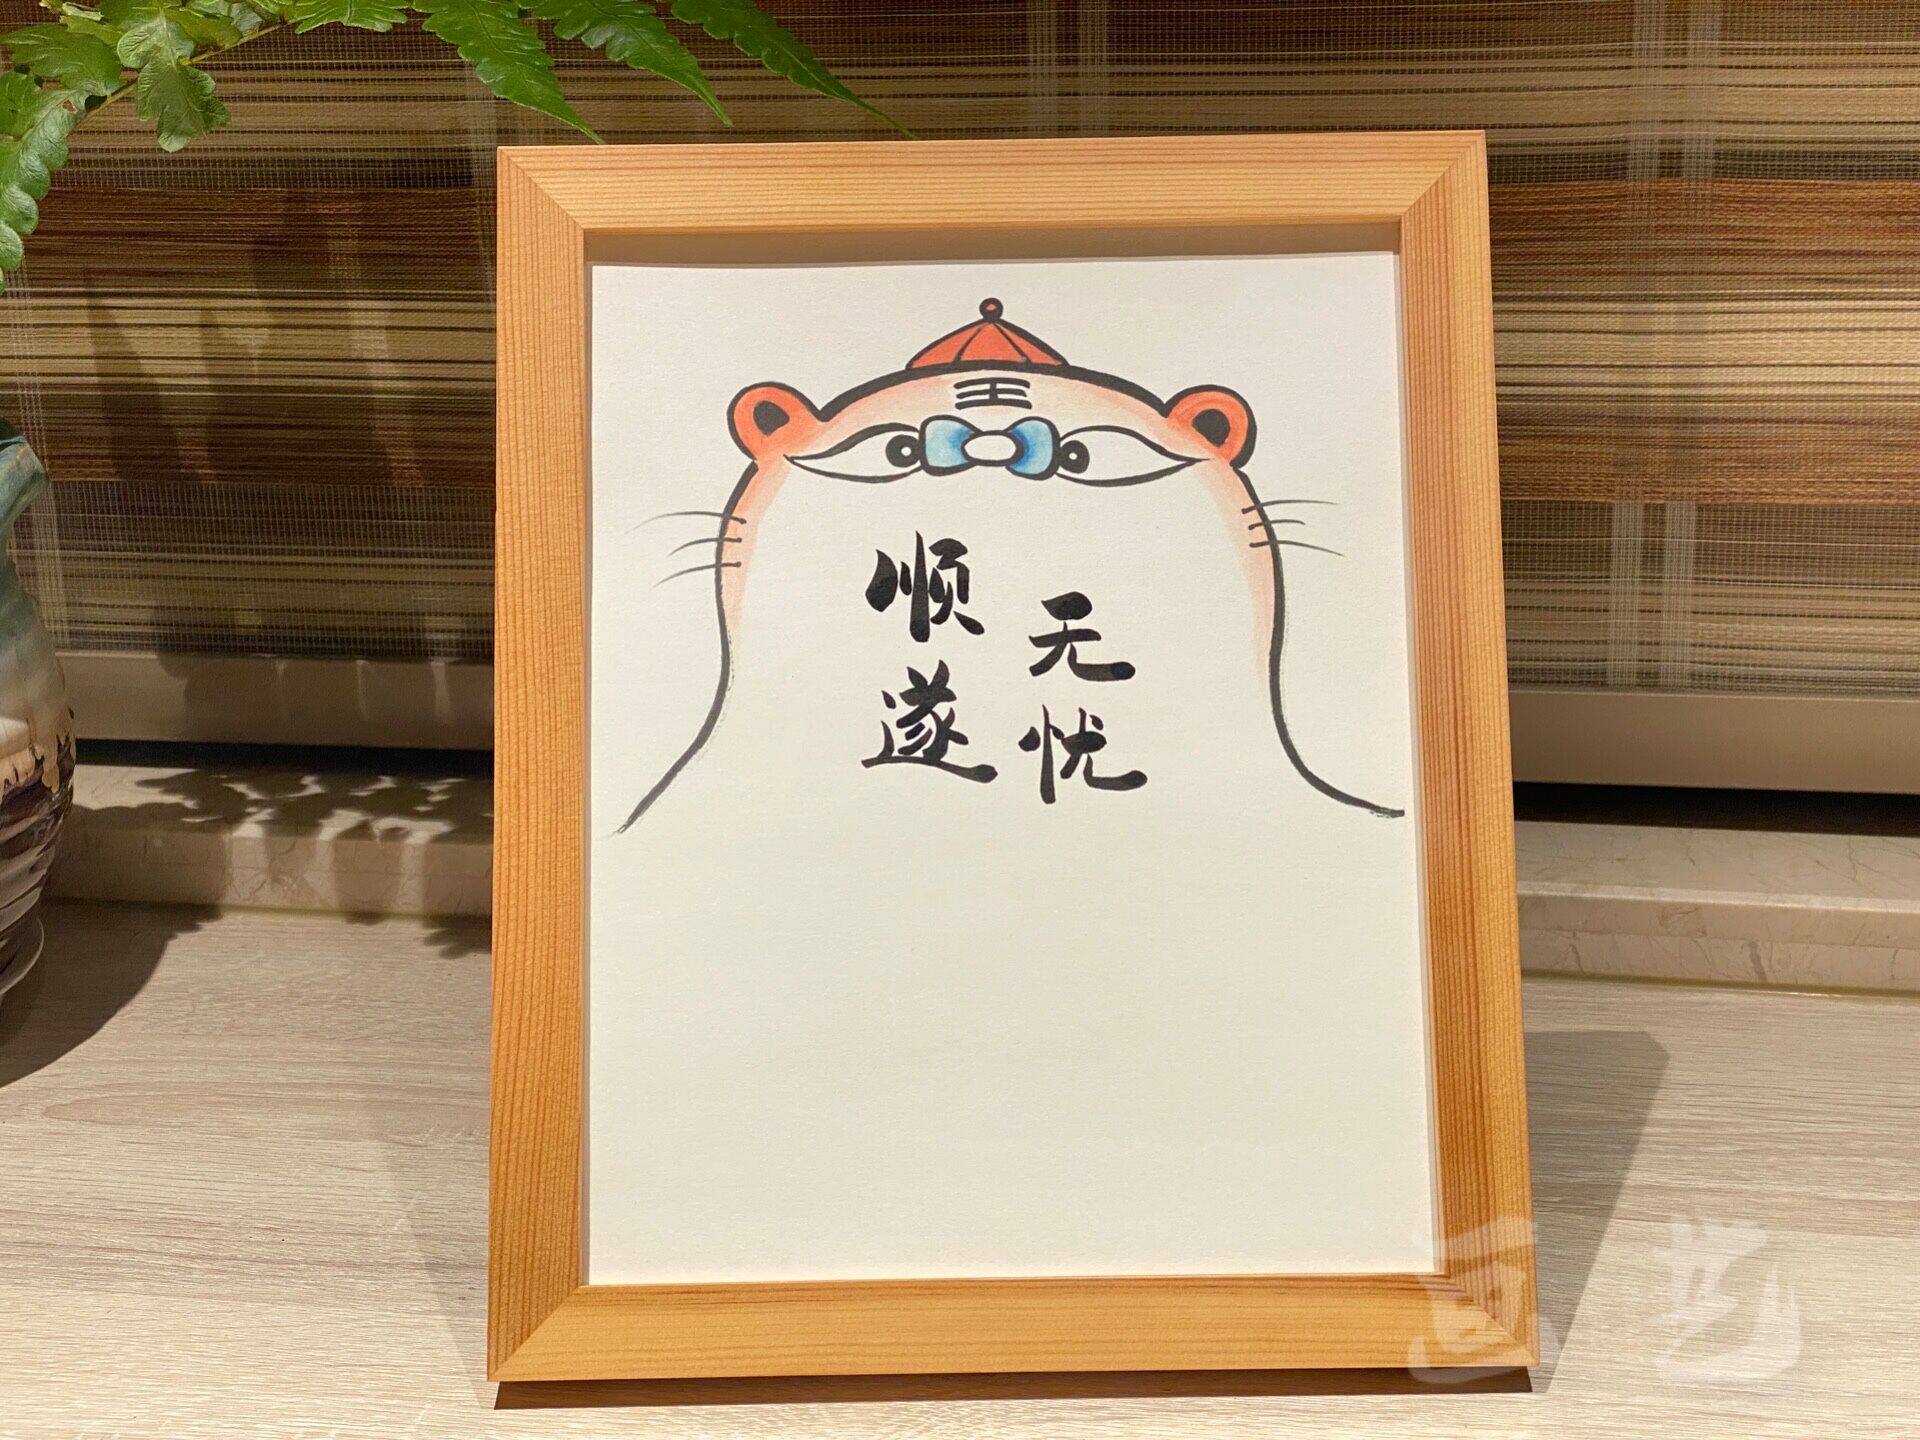 王
顺遂
无忧